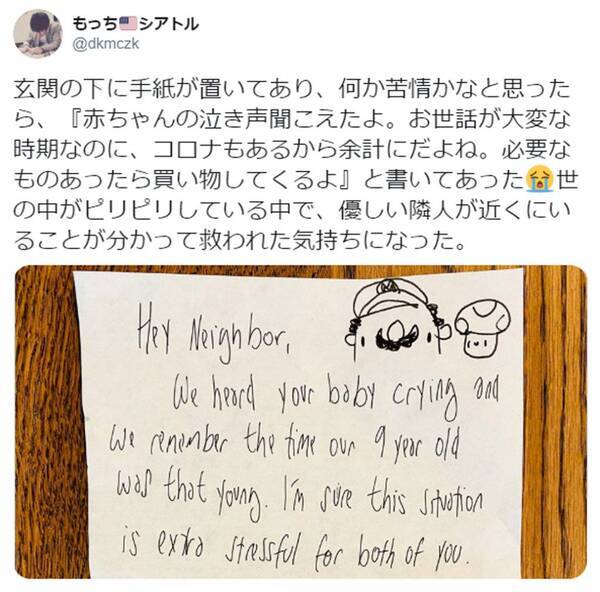 もっち🇺🇸シアトル
@dkmczk
玄関の下に手紙が置いてあり、何か苦情かなと思った
ら、『赤ちゃんの泣き声聞こえたよ。お世話が大変な
時期なのに、コロナもあるから余計にだよね。必要な
ものあったら買い物してくるよ』と書いてあった😭世
の中がピリピリしている中で、優しい隣人が近くにい
ることが分かって救われた気持ちになった。
Hey Neighbor,
We heard your baby crying and
we remember the time our 9 year old
was that young. I'm sure this situation
is extra stressful for both of you.